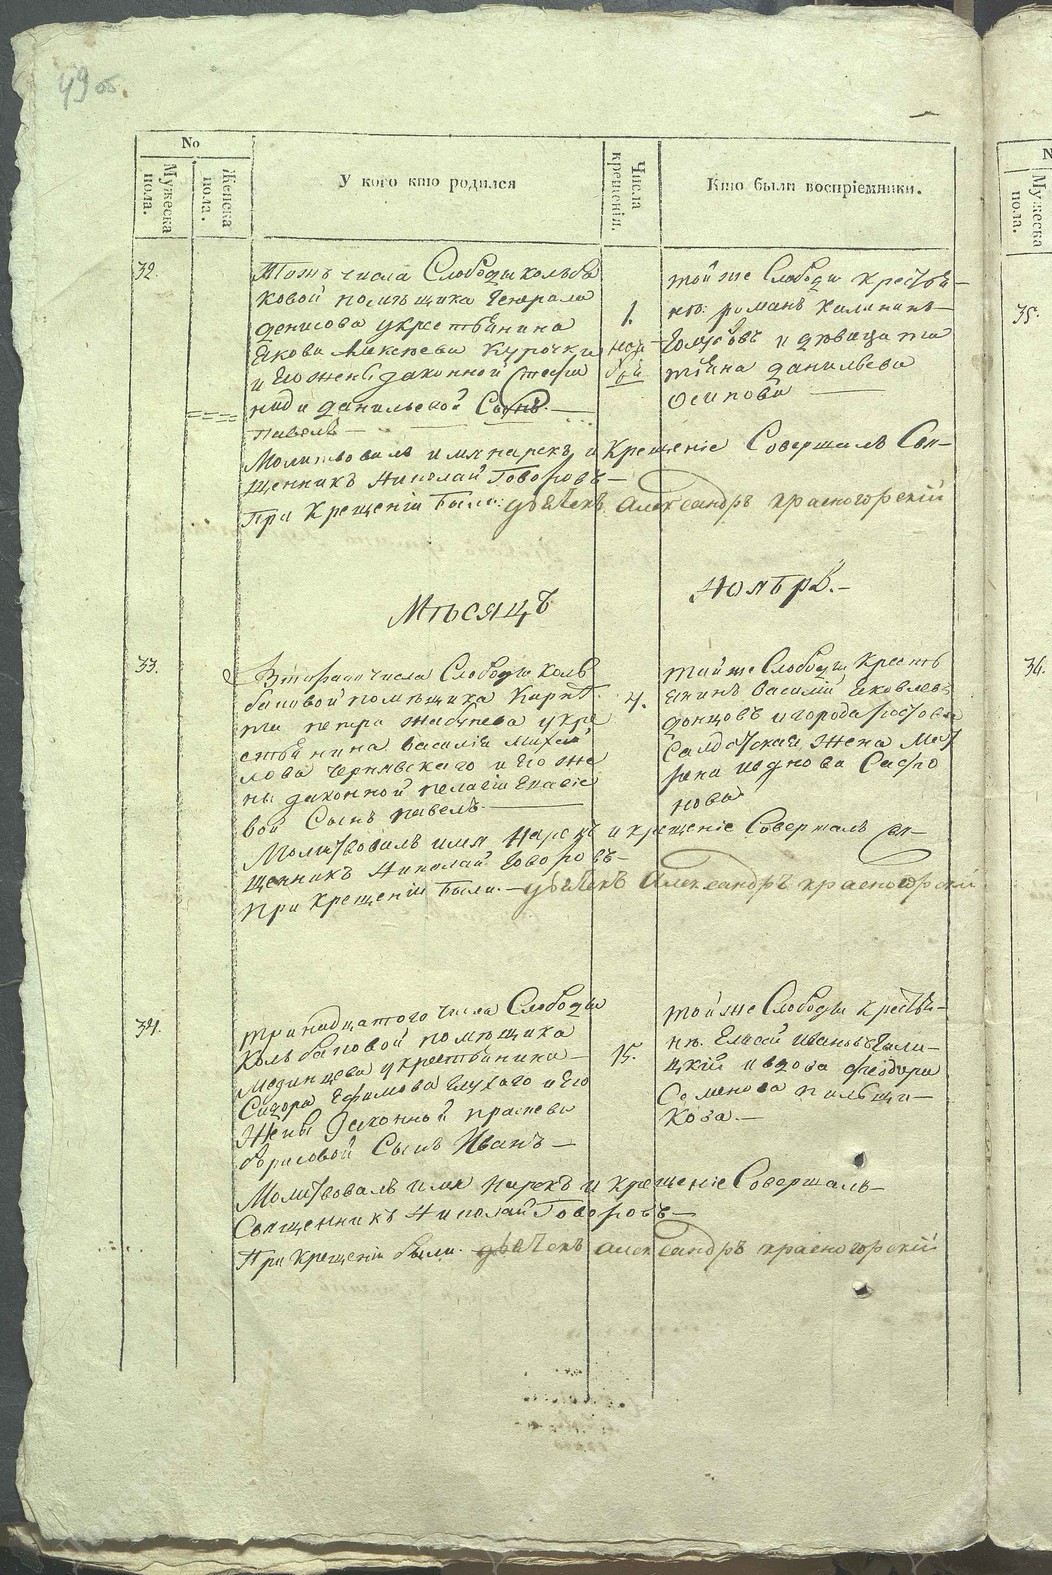 49 об.
No
Мужеска пола.
Женска пола.
У кого кто родился
Числа крещенія.
Кто были воспріемники.
32.
Тогожъ числа Слободы Кольба
ковой помѣщика Генерала
Денисова у крестьянина
Якова Алексѣева Курочки
и Его жены законной Стефа
ниди Данильевой Сынъ
павелъ
1.
ноя
бря
той же Слободы Крестья-
нъ романъ Калининъ
Голубовъ и дѣвица та
тіяна данильева
Осипова
Молитвовалъ имя нарекъ и Крещеніе Совершалъ Свя-
щенникъ Николай Говоровъ
При Крещеніи Были: дьячекъ Александръ красногорскій
Мѣсяцъ Ноябрь.
33.
Втораго числа Слободы Коль
баковой помѣщика
петра у кре
стьянина Василія Михай
лова Чернявскаго и Его же
ны законной пелагіи
вой Сынъ павелъ
4.
той же Слободы Кресть
янинъ Василій Яковлевъ
донцовъ и города ростова
Салдатская Жена Мат
рена Сафро
нова
Молитвовалъ имя Нарекъ и крещеніе Совершалъ Свя-
щенникъ Николай Говоровъ
При Крещеніи Были. дьячекъ Александръ красногорскій
34.
тринадцатого числа Слободы
Кольбаковой помѣщика
Мединцева у крестьянина
Сидора Ефимова Глухаго и Его
Жены Законной
Борисовой Сынъ Иванъ
15.
той же Слободы Крестья-
нъ. Елисей Ивановъ Гали-
цкій и вдова феодора
Семенова пильщи-
кова.
Молитвовалъ имя нарекъ и крещеніе Совершалъ
Священникъ Николай Говоровъ
При Крещеніи были. дьячекъ александръ красногорскій
Мужеска пола.
35.
36.